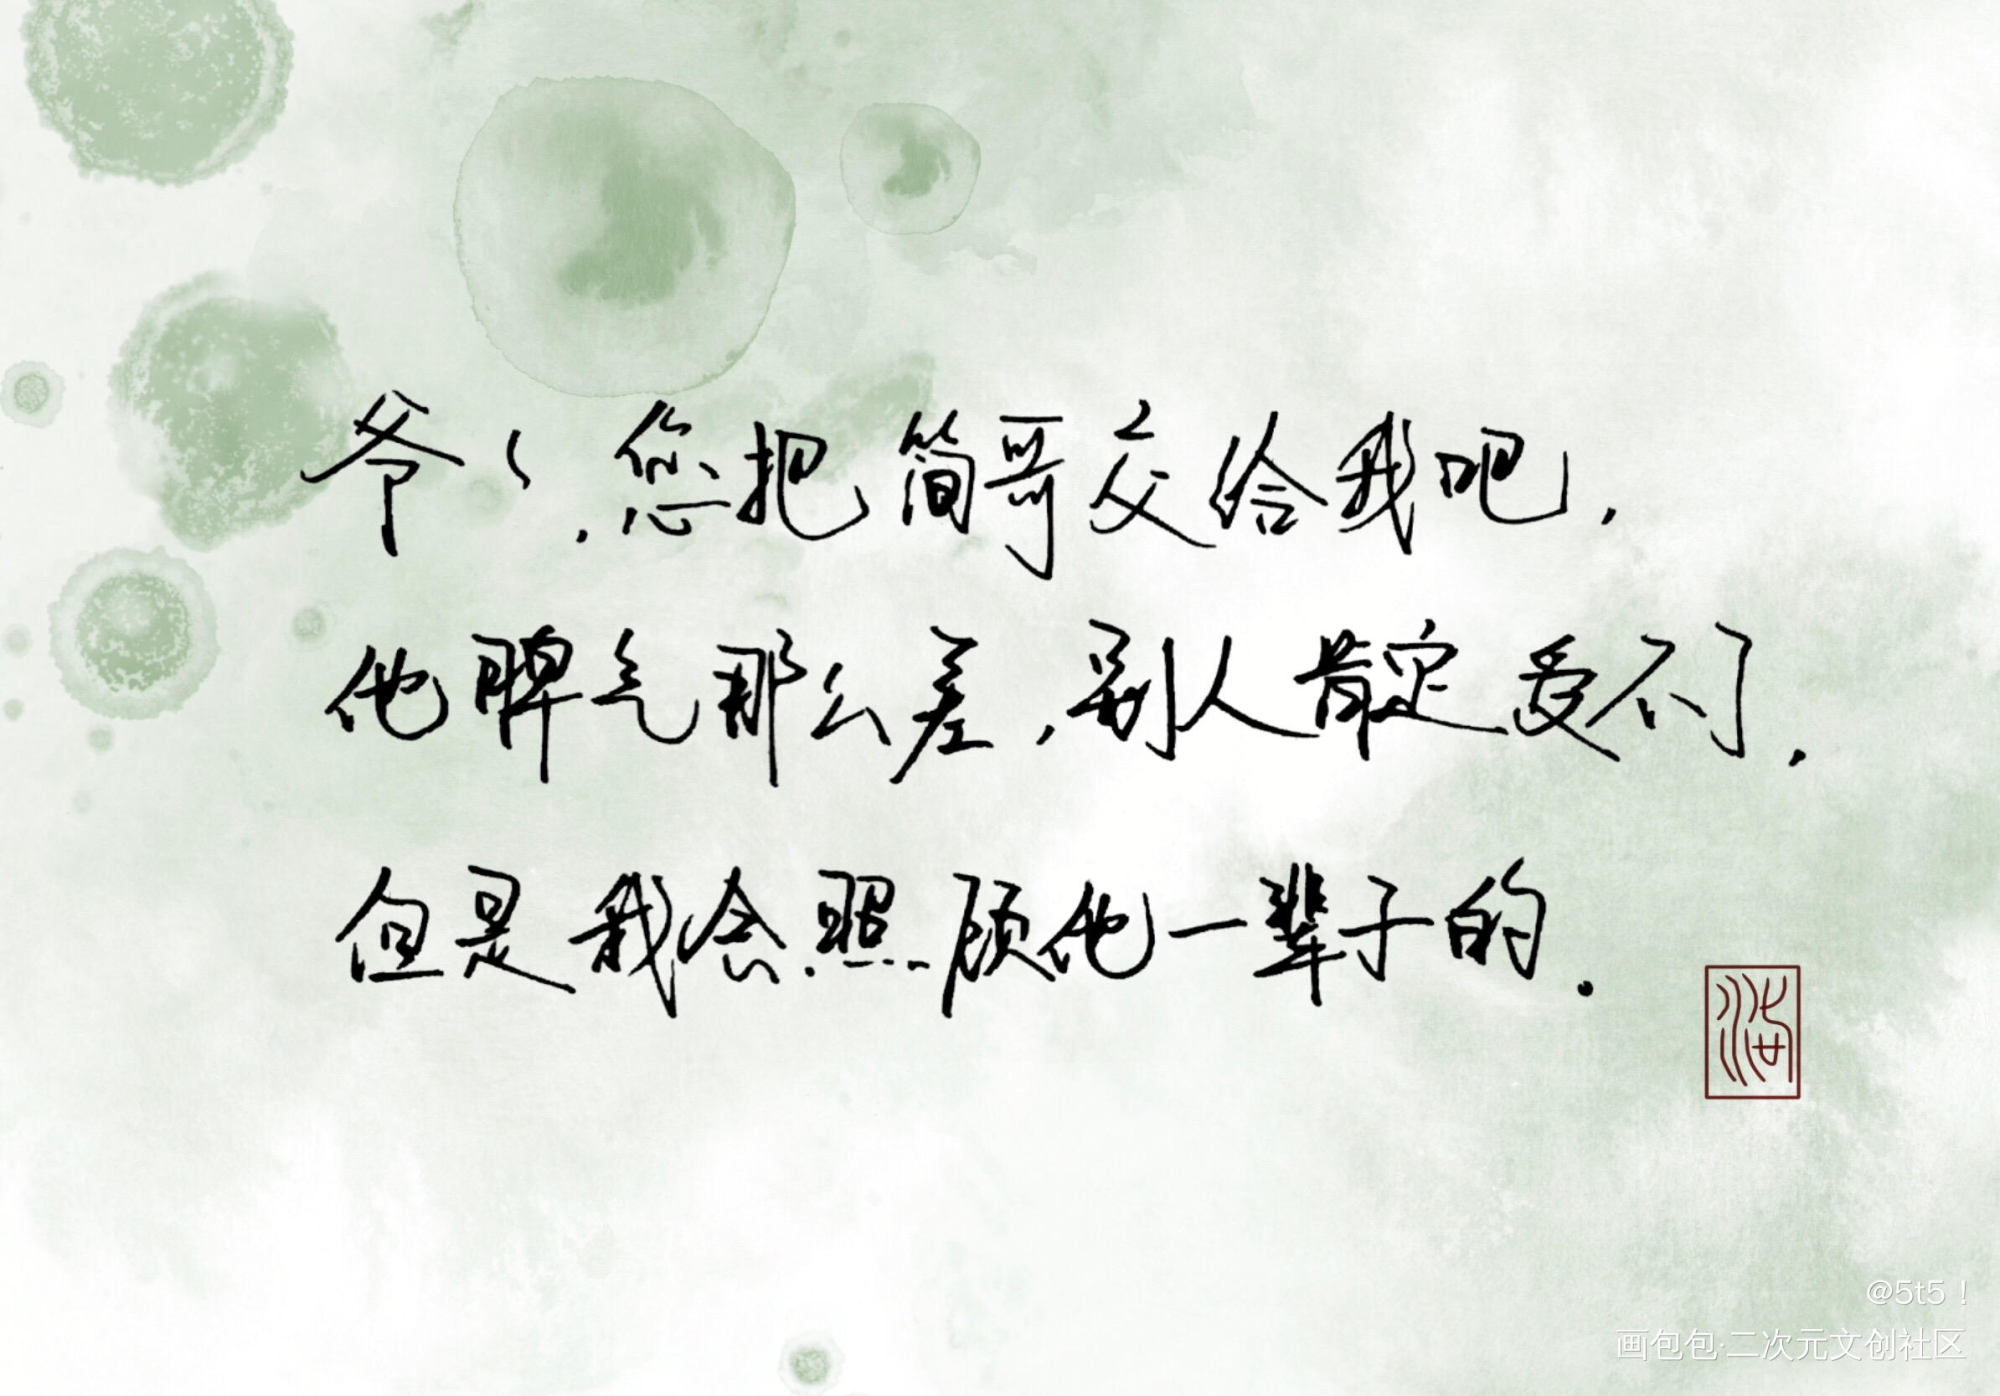 爷々，您把简哥交给我吧，
他脾气那么差，别人肯定受不了，
但是我会照顾他一辈子的。
海
@5t5！
画包包·二次元文创社区